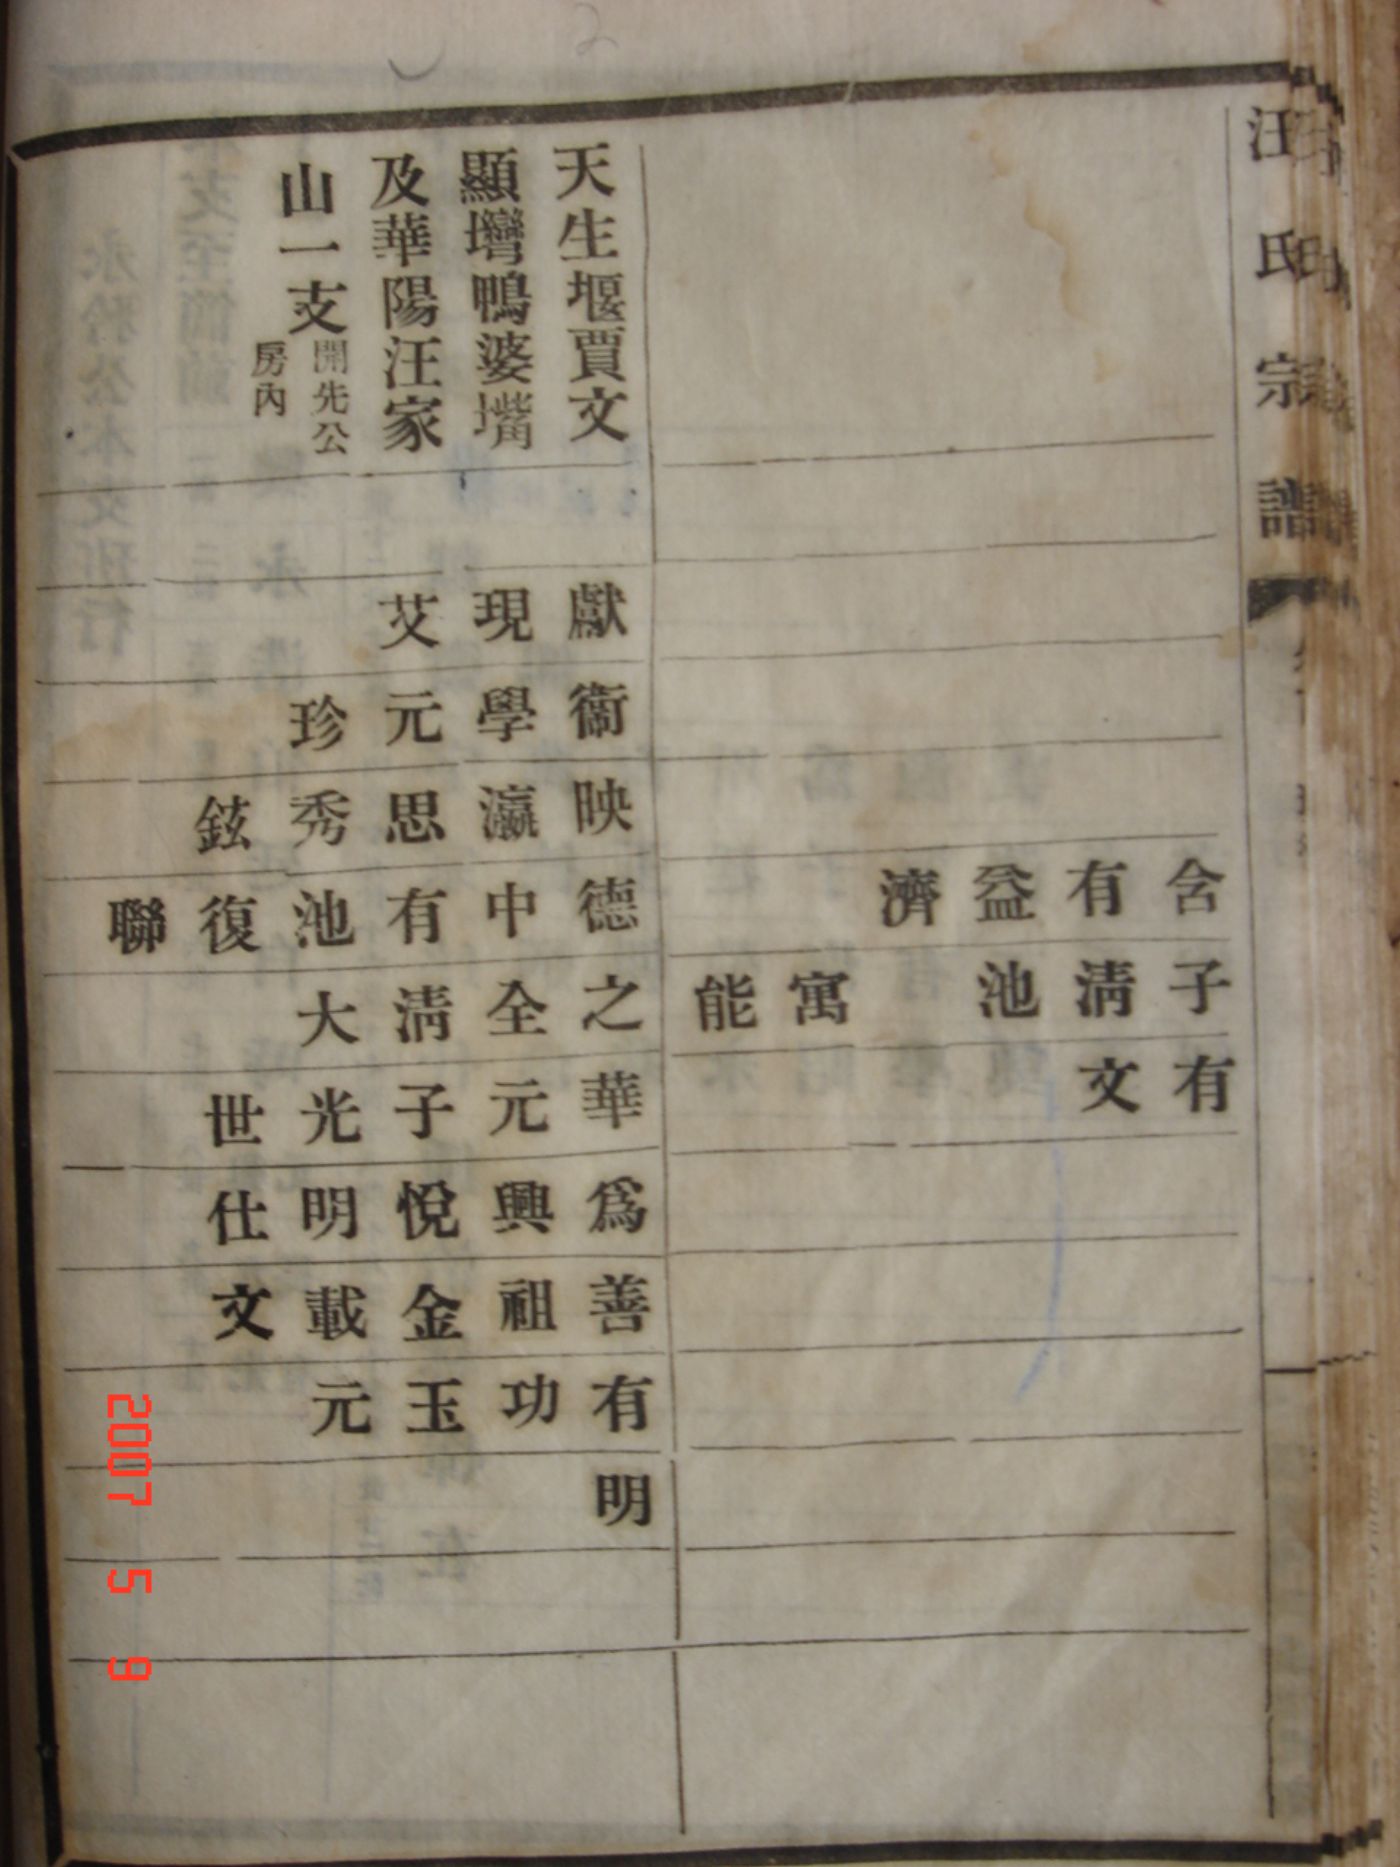 汪氏宗譜
含子有
有淸文
益池
濟
寓
能
天生堰賈文
顯壪鴨婆嘴
及華陽汪家
山一支
開先公
房內
獻衞映德之華爲善有明
現學瀛中全元興祖功
艾元思有淸子悅金玉
珍秀池大光明載元
鉉復世仕文
聯
2007 5 9